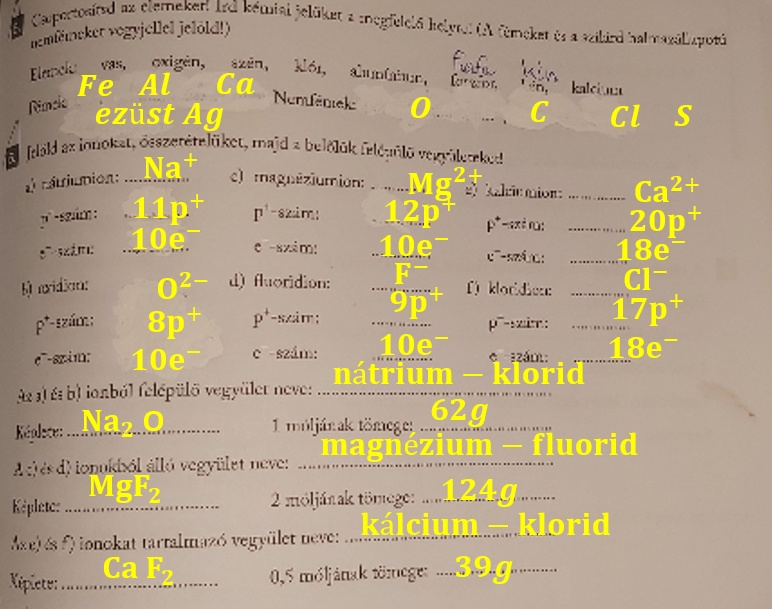 Csoportosítsd az elemeket! Írd kémiai jelüket a megfelelő helyre! (A fémeket és a szilárd halmazállapotú
nemfémeket vegyjellel jelöld!)
Elemek: vas, oxigén, szén, klór, alumínium, kén, kalcium
Fémek: Fe Al Ca Nemfémek: O C Cl S
ezüst Ag
Jelöld az ionokat, összerételüket, majd a belőlük felépülő vegyületeket!
a) nátriumion: Na⁺ c) magnéziumion: Mg²⁺ e) kalciumion: Ca²⁺
p⁺-szám: 11p⁺ p⁺-szám: 12p⁺ p⁺-szám: 20p⁺
e⁻-szám: 10e⁻ e⁻-szám: 10e⁻ e⁻-szám: 18e⁻
b) oxidion: O²⁻ d) fluoridion: F⁻ f) kloridion: Cl⁻
p⁺-szám: 8p⁺ p⁺-szám: 9p⁺ p⁺-szám: 17p⁺
e⁻-szám: 10e⁻ e⁻-szám: 10e⁻ e⁻-szám: 18e⁻
Az a) és b) ionból felépülő vegyület neve: nátrium – klorid
Képlete: Na₂ O 1 móljának tömege: 62g
A c) és d) ionokból álló vegyület neve: magnézium – fluorid
Képlete: MgF₂ 2 móljának tömege: 124g
Az e) és f) ionokat tartalmazó vegyület neve: kálcium – klorid
Képlete: Ca F₂ 0,5 móljának tömege: 39g